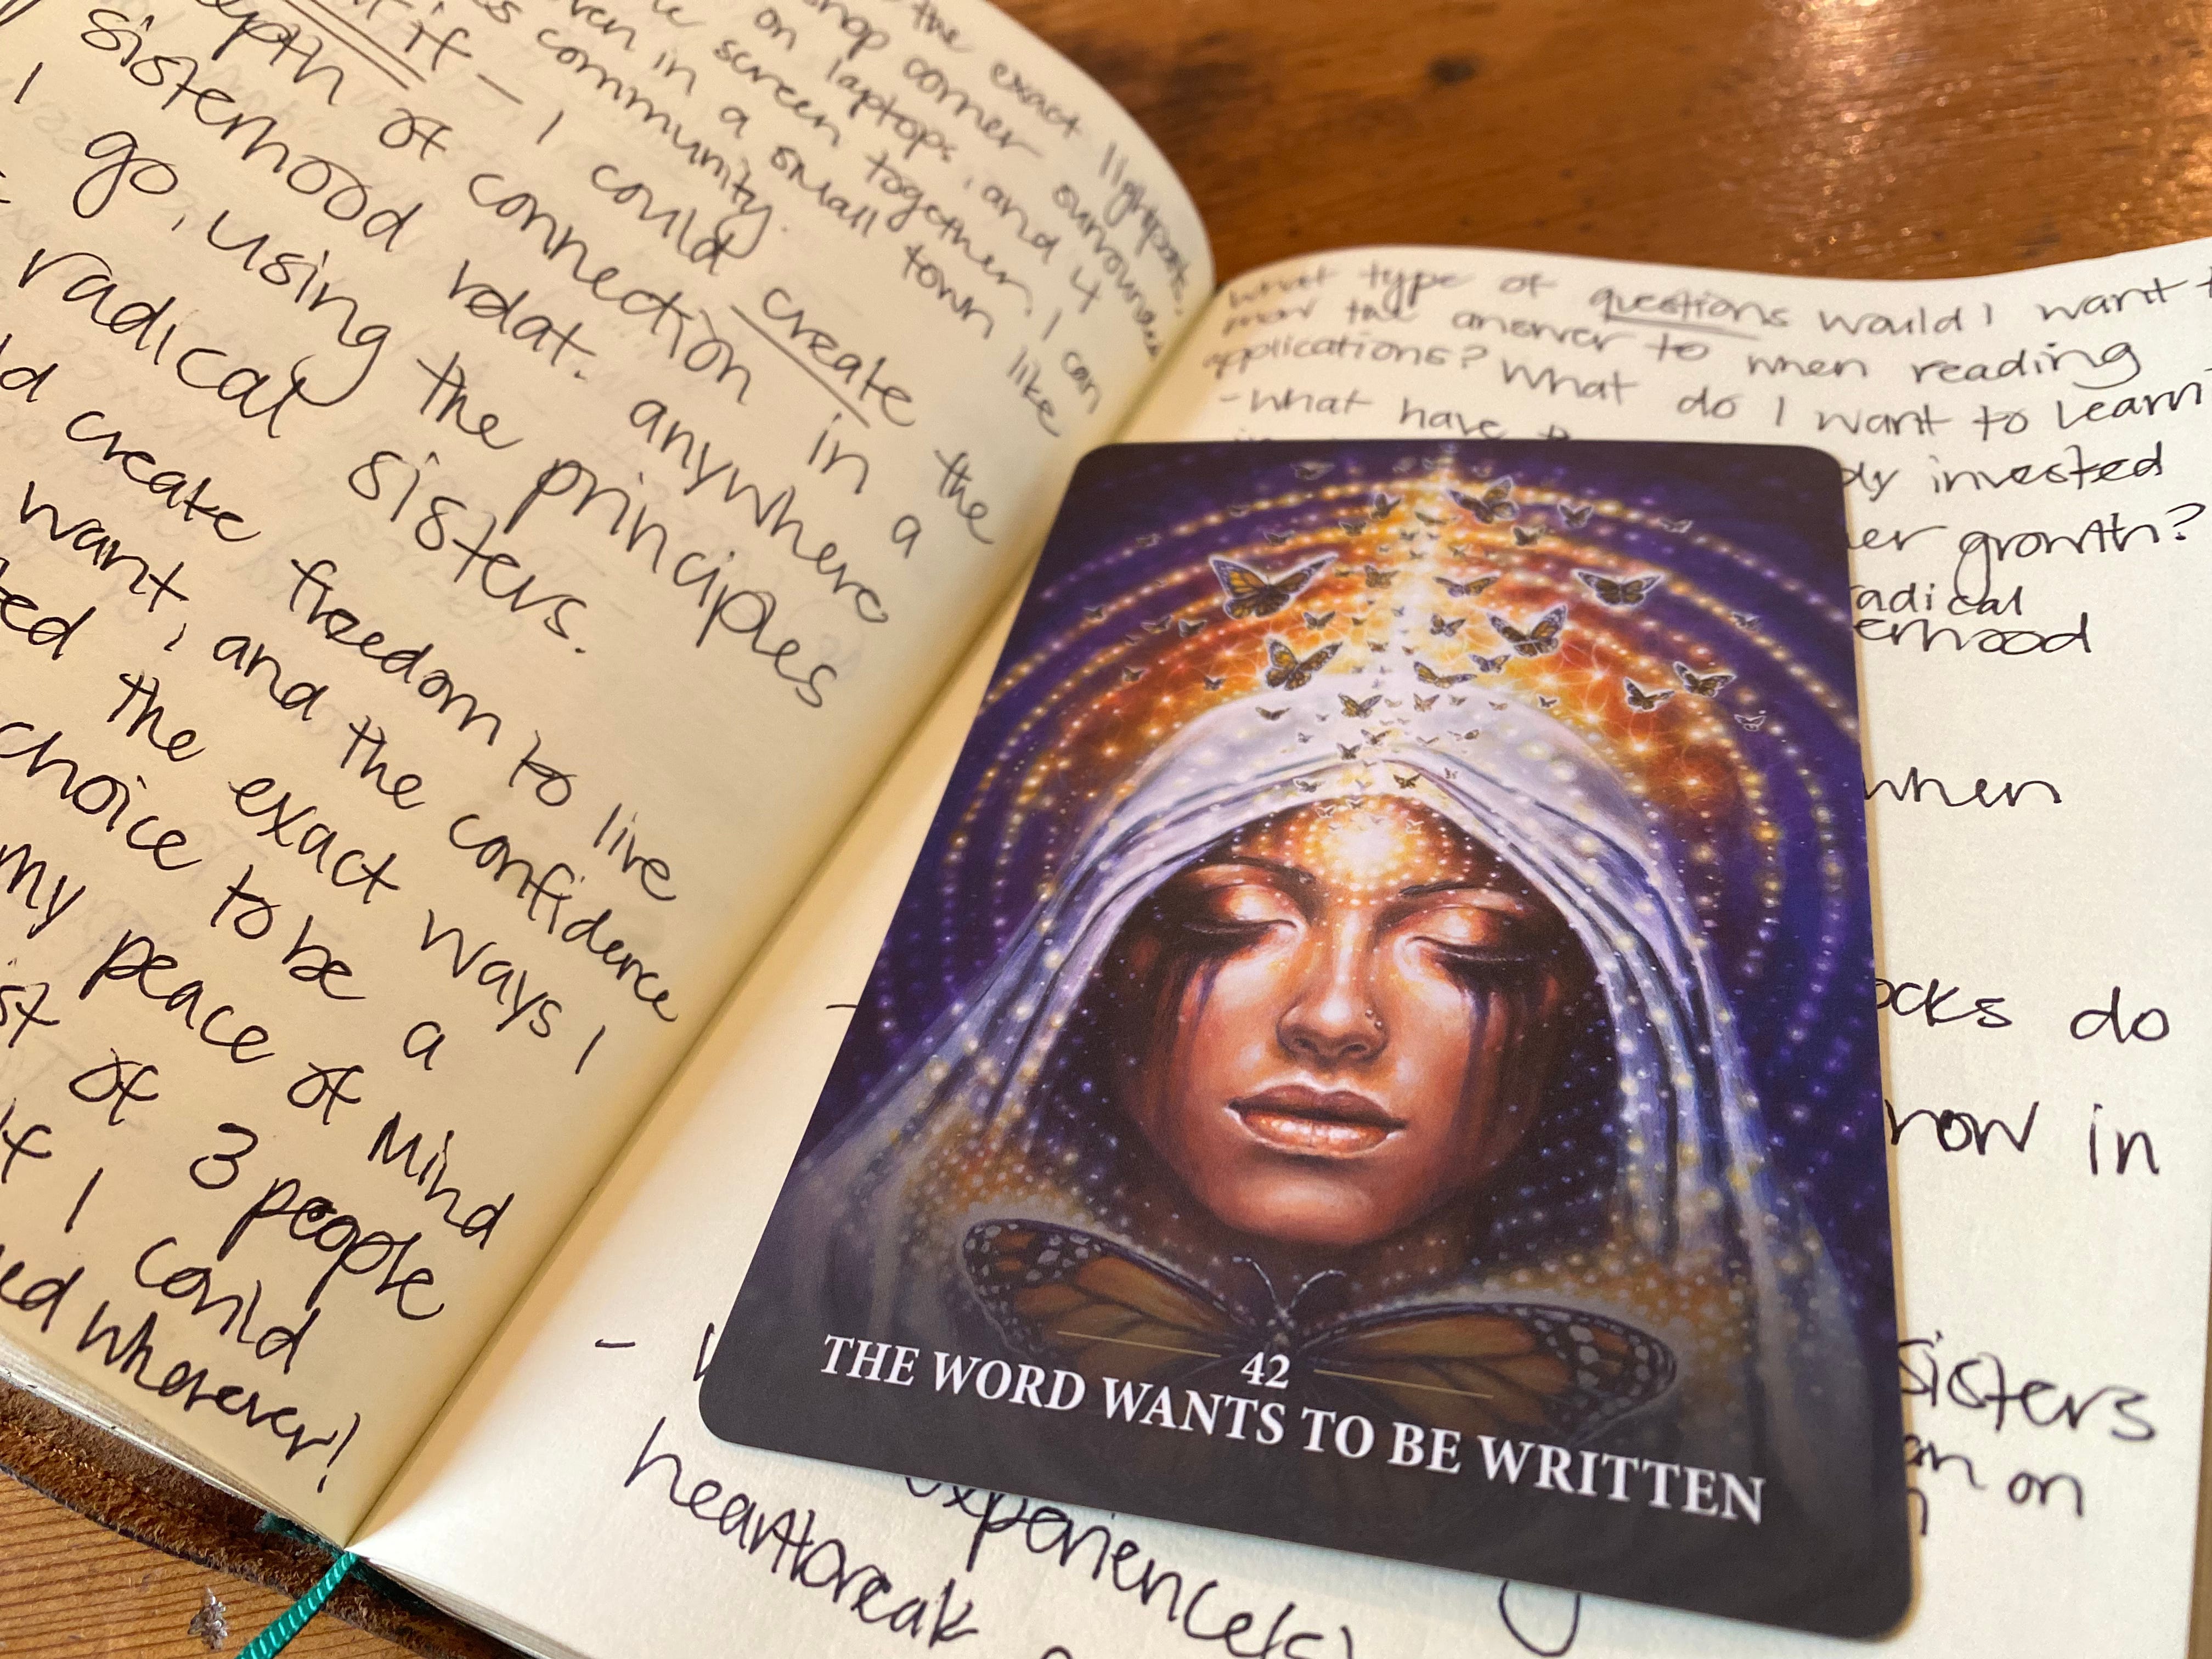 the exact lightposts.
shop corner surrounded
on laptops, and 4
screen together, I can
even in a small town like
community.
it — I could create the
depth of connection in a
sisterhood anywhere
I go, using the principles
radical sisters.
create freedom to live
want, and the confidence
the exact ways I
choice to be a
my peace of mind
of 3 people
I could
wherever!
What type of questions would I want
the answer to when reading
applications? What do I want to learn
- What have
invested
growth?
radical
when
do
in
sisters
on
experience(s)
heartbreak
42
THE WORD WANTS TO BE WRITTEN